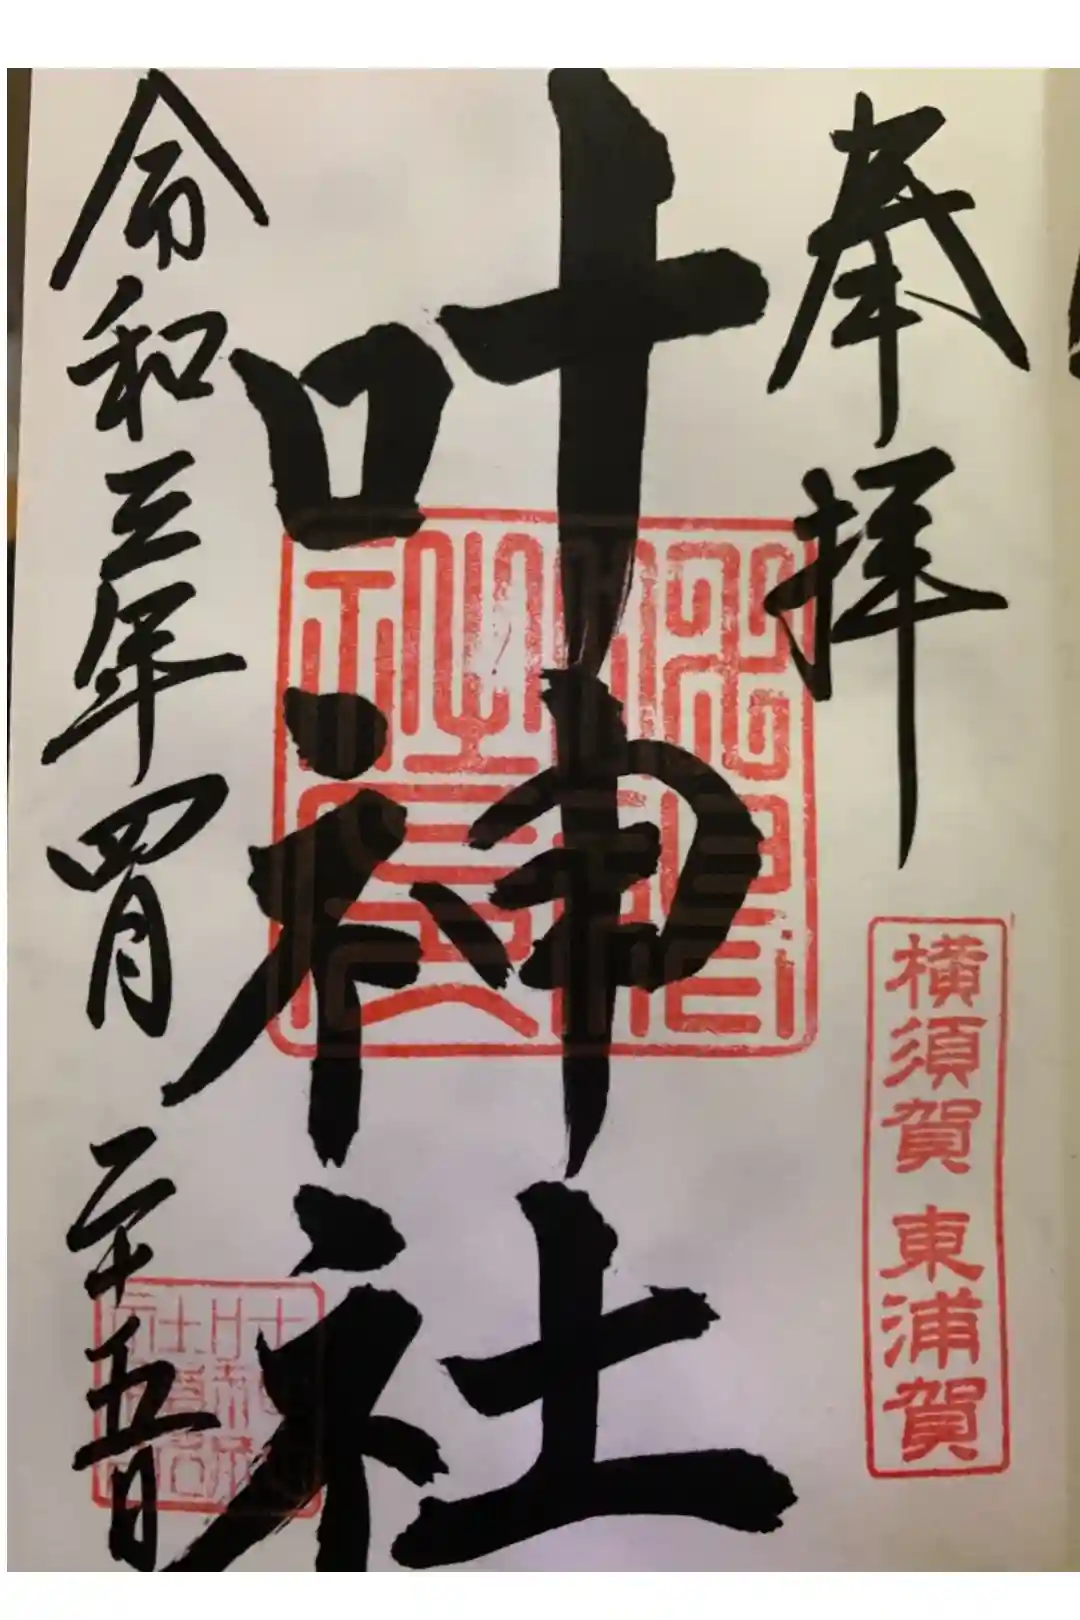 奉拝
横須賀 東浦賀
叶神社
令和三年四月二十五日